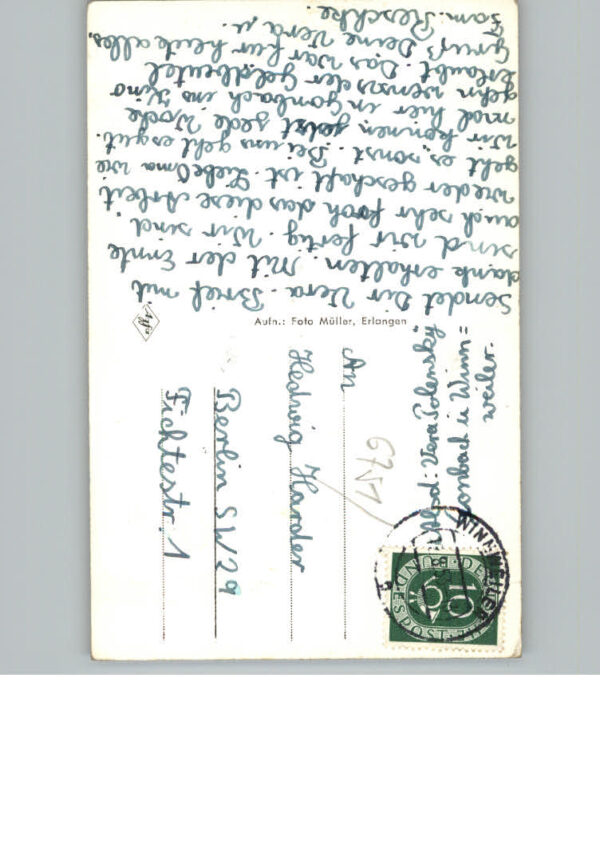 sendet Dir Vera. Brief mit
dank erhalten. Mit der Ernte
sind wir fertig. Wir sind
auch sehr froh das diese Arbeit
wieder geschaft ist. Liebe Oma wie
geht es sonst. Bei uns geht es gut.
Wir kennen jetzt jede Woche
mal hier in Gonbach ins Kino
gehn wenns der Geldbeutel
erlaubt. Das war für heute alles.
Gruß Deine Vera u.
Fam. Reschke.
Aufn.: Foto Müller, Erlangen
Agfa
Absd: Vera Polensky
Gonbach ü Winn=
weiler.
6751
An
Hedwig Harder
Berlin SW 29
Fichtestr. 1
WINNWEILER
DEUTSCHE BUNDESPOST
10